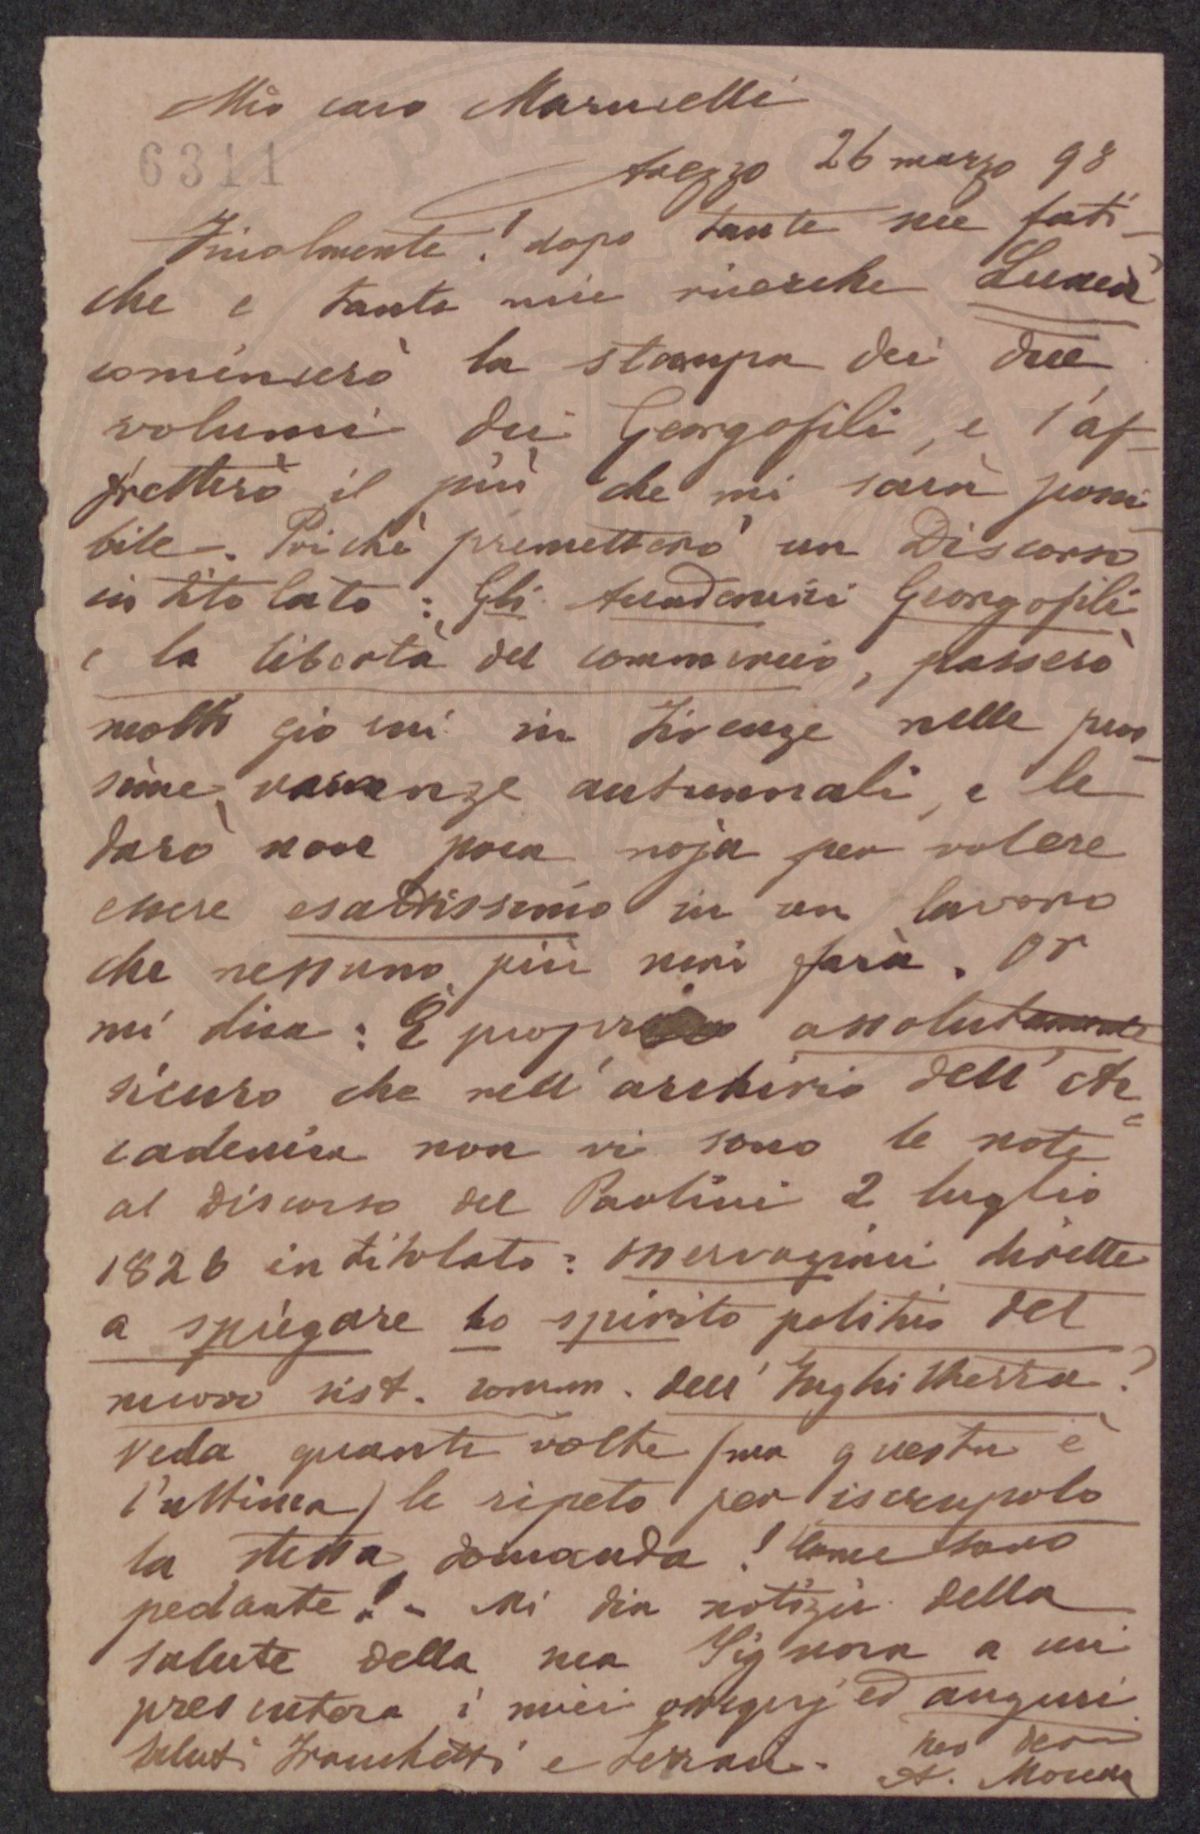 Mio caro Marucelli
6311
Arezzo 26 marzo 98
Finalmente! dopo tante sue fati-
che e tante mie ricerche Lunedì
comincerò la stampa dei due
volumi dei Georgofili, e l'af-
fretterò il più che mi sarà possi-
bile. Poichè premetterò un Discorso
intitolato: Gli Accademici Georgofili
e la libertà del commercio, passerò
molti giorni in Firenze nelle pros-
sime vacanze autunnali, e le
darò non poca noja per volere
essere esattissimo in un lavoro
che nessuno più mai farà. Or
mi dica: È proprio assolutamente
sicuro che nell'archivio dell'Ac-
cademia non vi sono le note
al discorso del Paolini 2 luglio
1826 intitolato: Osservazioni dirette
a spiegare lo spirito politico del
nuovo sist. comm. dell'Inghilterra?
Veda quante volte (ma questa è
l'ultima) le ripeto per iscrupolo
la stessa domanda! Come sono
pedante! - Mi dia notizie della
salute della sua Signora a cui
presenterà i miei ossequj ed auguri.
Saluti Franchetti e Ferrari.
suo
A. Morena